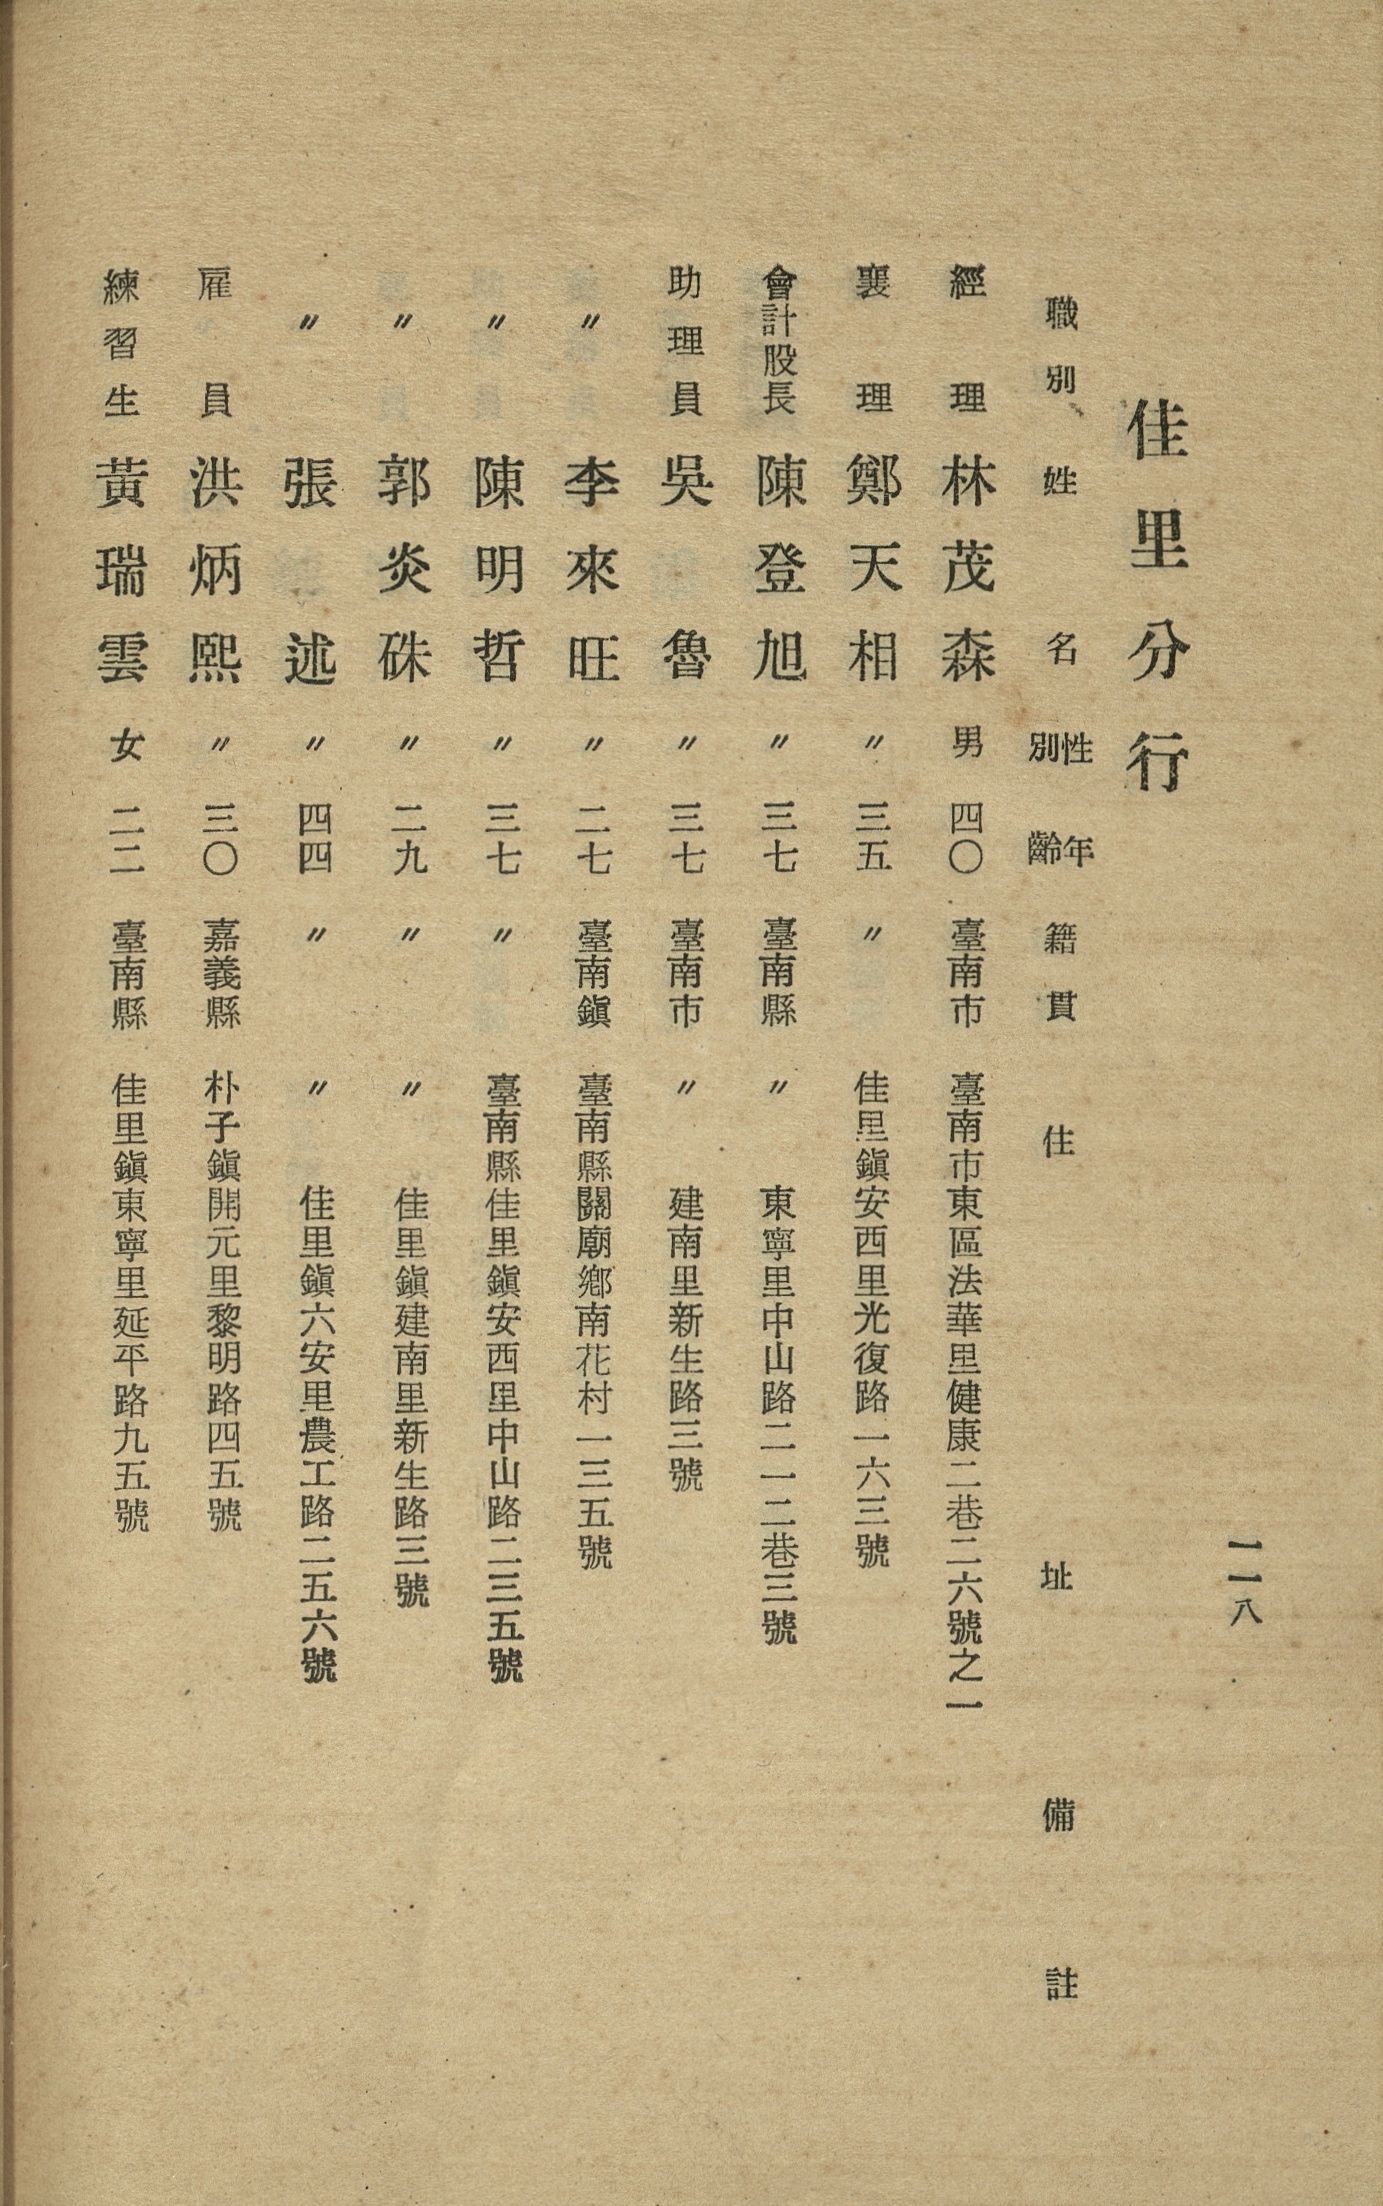 一一八
佳里分行
職別 姓名 性別 年齡 籍貫 住址 備註
經理 林茂森 男 四〇 臺南市 臺南市東區法華里健康二巷二六號之一
襄理 鄭天相 〃 三五 〃 佳里鎭安西里光復路一六三號
會計股長 陳登旭 〃 三七 臺南縣 〃 東寧里中山路二一二巷三號
助理員 吳魯 〃 三七 臺南市 〃 建南里新生路三號
〃 李來旺 〃 二七 臺南鎭 臺南縣關廟鄕南花村一三五號
〃 陳明哲 〃 三七 〃 臺南縣佳里鎭安西里中山路二三五號
〃 郭炎硃 〃 二九 〃 〃 佳里鎭建南里新生路三號
〃 張述 〃 四四 〃 〃 佳里鎭六安里農工路二五六號
雇員 洪炳熙 〃 三〇 嘉義縣 朴子鎭開元里黎明路四五號
練習生 黃瑞雲 女 二二 臺南縣 佳里鎭東寧里延平路九五號